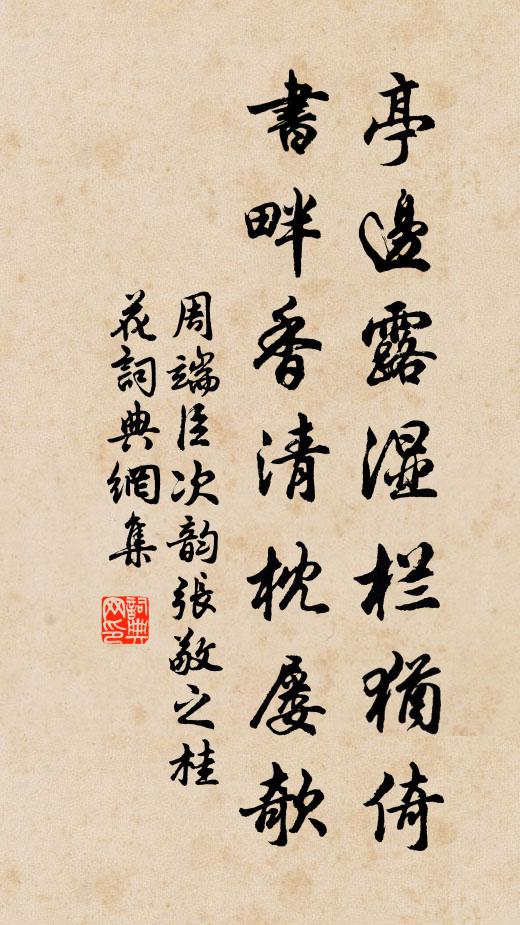 亭邊露濕栏猶倚
書畔香清枕屡欹
周端臣次韵張敬之桂
花詞典網集
詞典网印